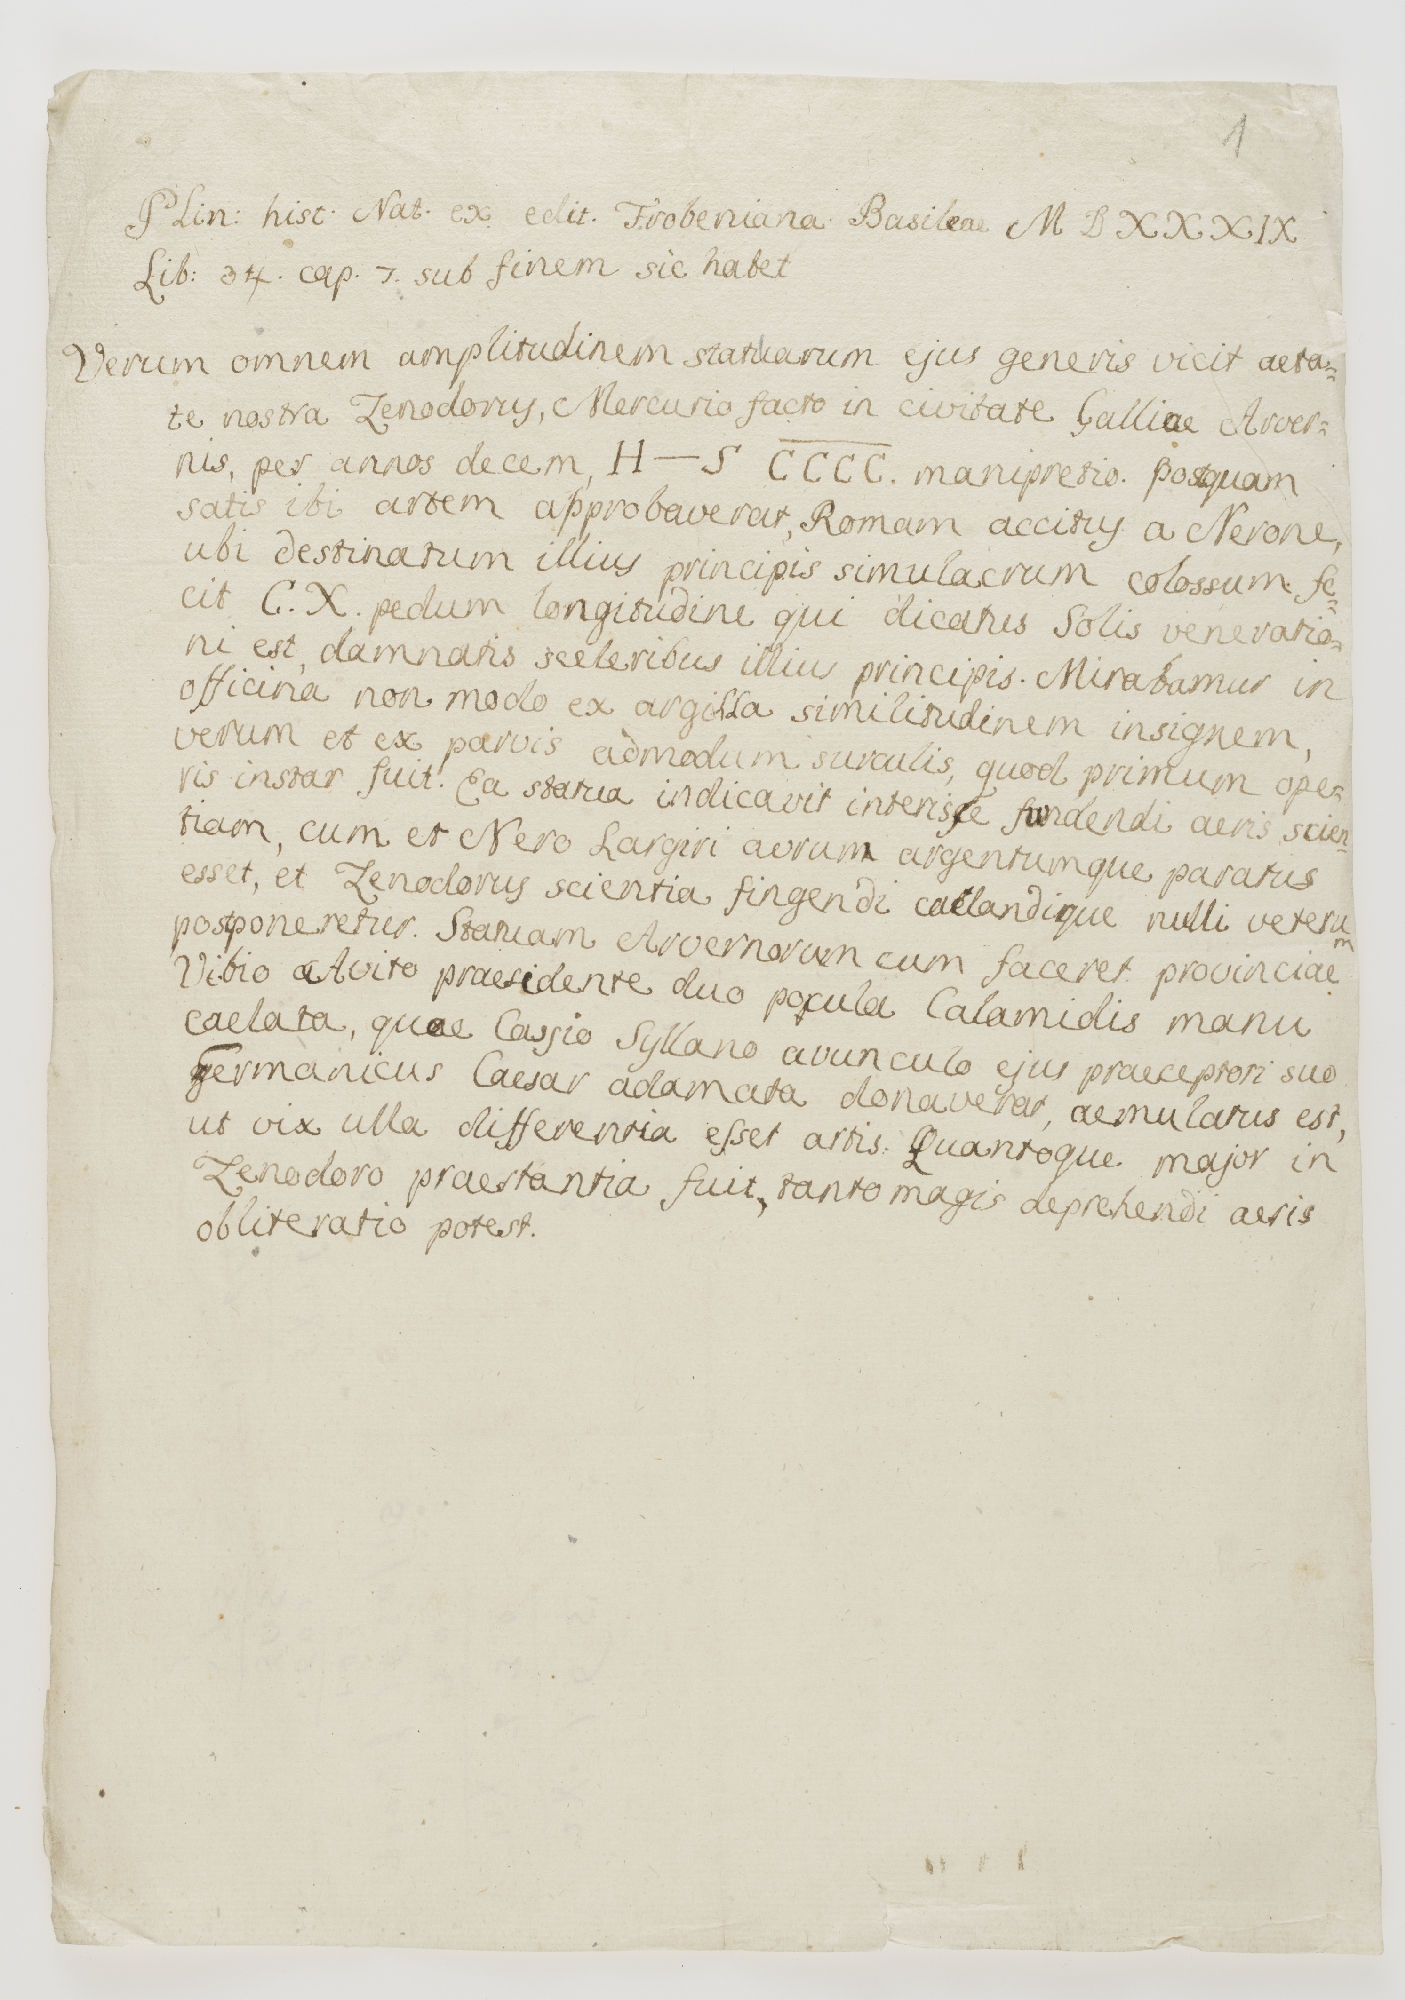 1
PLin: hist. Nat. ex edit. Frobeniana Basileae M D XXXIX
Lib: 34. cap. 7. sub finem sic habet
Verum omnem amplitudinem statuarum ejus generis vicit aeta=
te nostra Zenodorus, Mercurio facto in civitate Galliae Arver=
nis, per annos decem, H—S C̅C̅C̅C̅. manipretio. postquam
satis ibi artem approbaverat, Romam accitus a Nerone,
ubi destinatum illius principis simulacrum colossum fe=
cit C.X. pedum longitudine qui dicatus Solis veneratio=
ni est, damnatis sceleribus illius principis. Mirabamur in
officina non modo ex argilla similitudinem insignem,
verum et ex parvis admodum surculis, quod primum ope=
ris instar fuit. Ea statua indicavit interisse fundendi aeris scien=
tiam, cum et Nero Largiri aurum argentumque paratus
esset, et Zenodorus scientia fingendi caelandique nulli veterum
postponeretur. Statuam Arvernorum cum faceret provinciae
Vibio Avito praesidente duo pocula Calamidis manu
caelata, quae Cassio Syllano avunculo ejus praeceptori suo
germanicus Caesar adamata donaverat, aemulatus est,
ut vix ulla differentia esset artis. Quantoque major in
Zenodoro praestantia fuit, tanto magis deprehendi aeris
obliteratio potest.